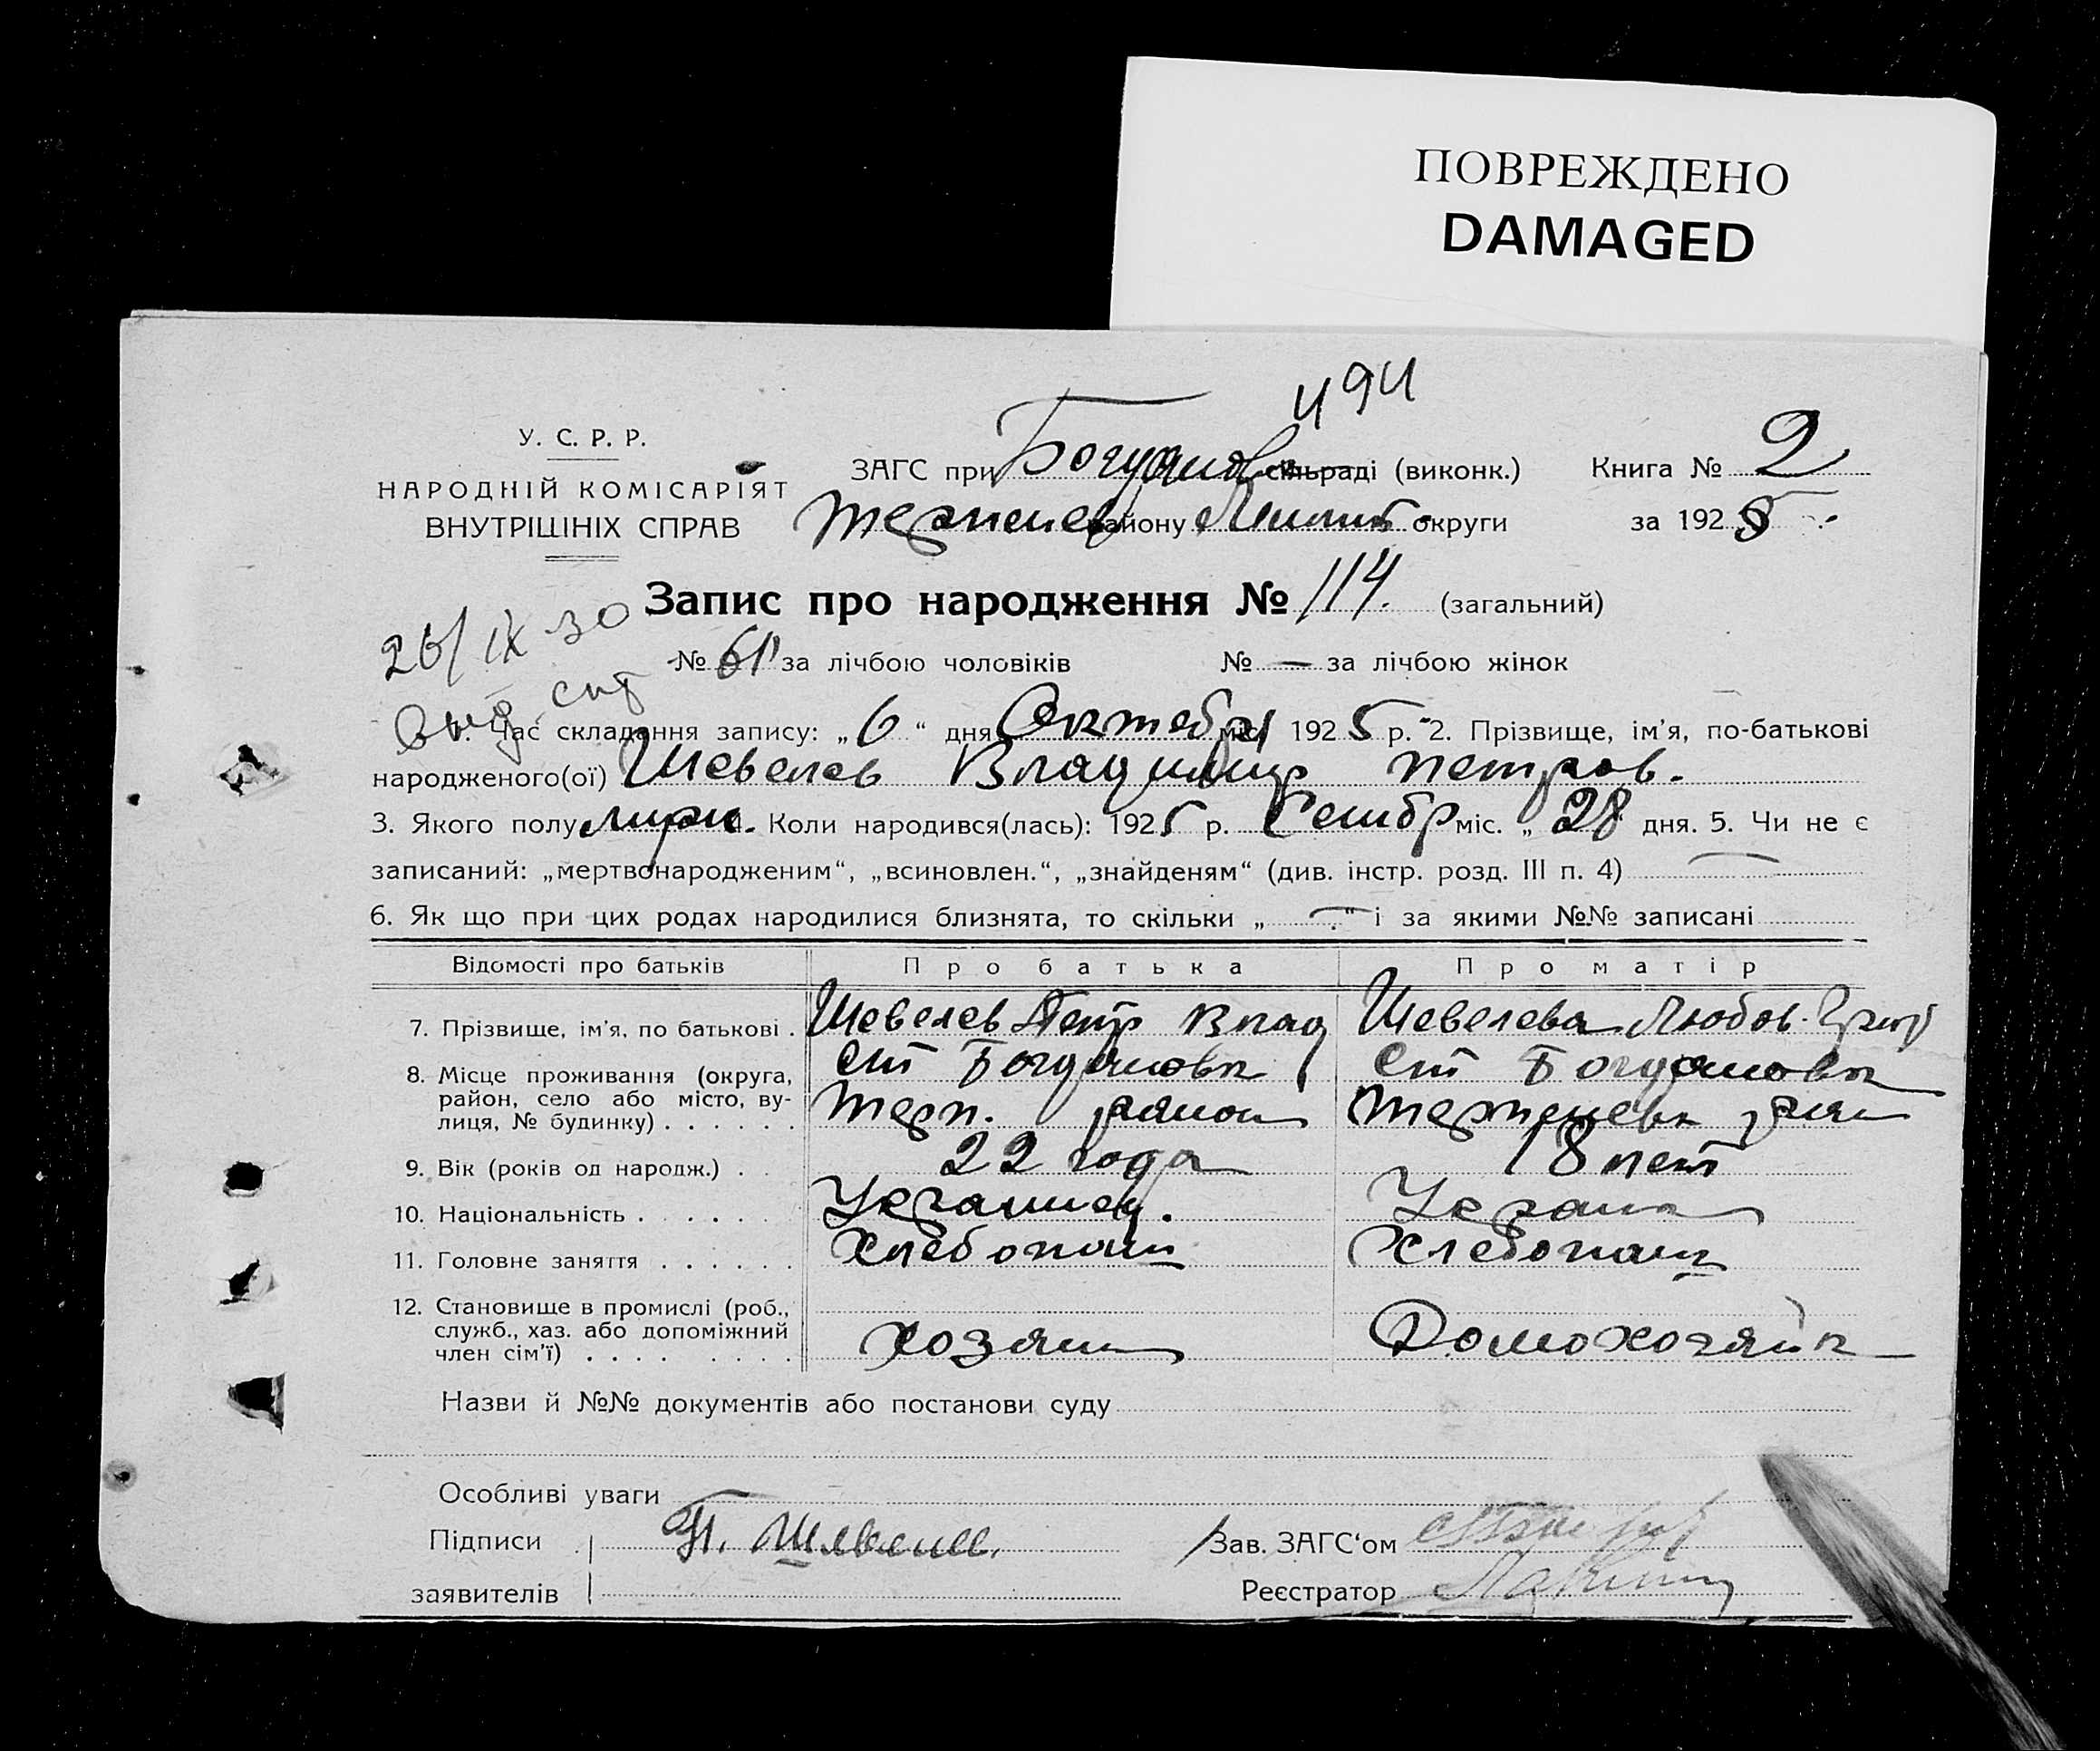 ПОВРЕЖДЕНО
DAMAGED
494
У. С. Р. Р.
НАРОДНІЙ КОМІСАРІЯТ
ВНУТРІШНІХ СПРАВ
ЗАГС при Богданов сільраді (виконк.) Книга № 2
району округи за 1925
Запис про народження № 114. (загальний)
26/IX 30
№ 61 за лічбою чоловіків № — за лічбою жінок
1. Час складання запису: „6“ дня Октебр міс. 1925 р. 2. Прізвище, ім'я, по-батькові
народженого(ої) Шевелев Владимир Петров.
3. Якого полу 4. Коли народився(лась): 1925 р. міс. „28 дня. 5. Чи не є
записаний: „мертвонародженим“, „всиновлен.“, „знайденям“ (див. інстр. розд. III п. 4) —
6. Як що при цих родах народилися близнята, то скільки „—“ і за якими №№ записані
Відомості про батьків Про батька Про матір
7. Прізвище, ім'я, по батькові . Шевелев Петр Влад Шевелева Любов. Григ
8. Місце проживання (округа, район, село або місто, вулиця, № будинку) . . . . . .
Богдановк Богдановк
Терп. район
9. Вік (років од народж.) . . 22 года 18 лет
10. Національність . . . . . . Украинец. Украин
11. Головне заняття . . . . . . Хлебопаш Хлебопаш
12. Становище в промислі (роб., служб., хаз. або допоміжний член сім'ї) . . . . . . . . Хозяин Домохозяйк
Назви й №№ документів або постанови суду
Особливі уваги
Підписи П. Шевелев. Зав. ЗАГС'ом
заявителів Реєстратор